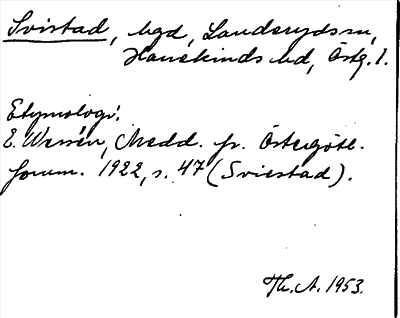 Svistad, bgd, Landerydssn,
Hanekinds hd, Östg. l.
Etymologi:
E. Wessén, Medd. fr. Östergötl.
fornm. 1922, s. 47 (Sviestad).
Th. A. 1953.